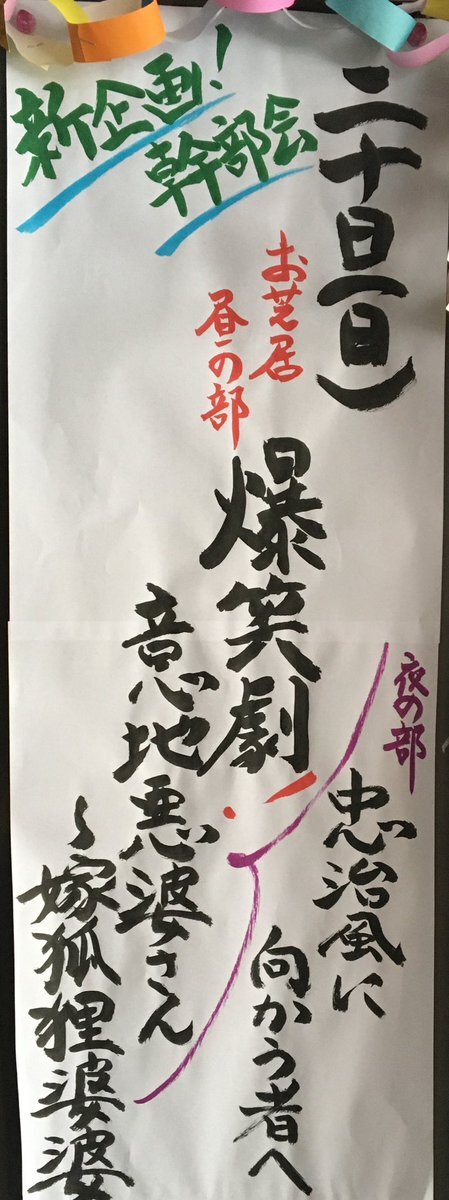 二十日(日)
新企画!
幹部会
お芝居
昼の部
爆笑劇!
意地悪婆さん
〜嫁狐狸婆婆
夜の部
忠治風に
向かう者へ